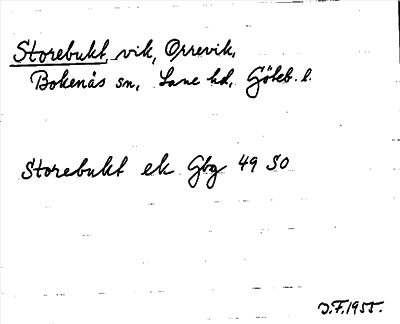 Storebukt, vik, Orrevik,
Bokenäs sn, Lane hd, Göteb. l.
Storebukt ek Gbg 49 SO
J.F. 1955.